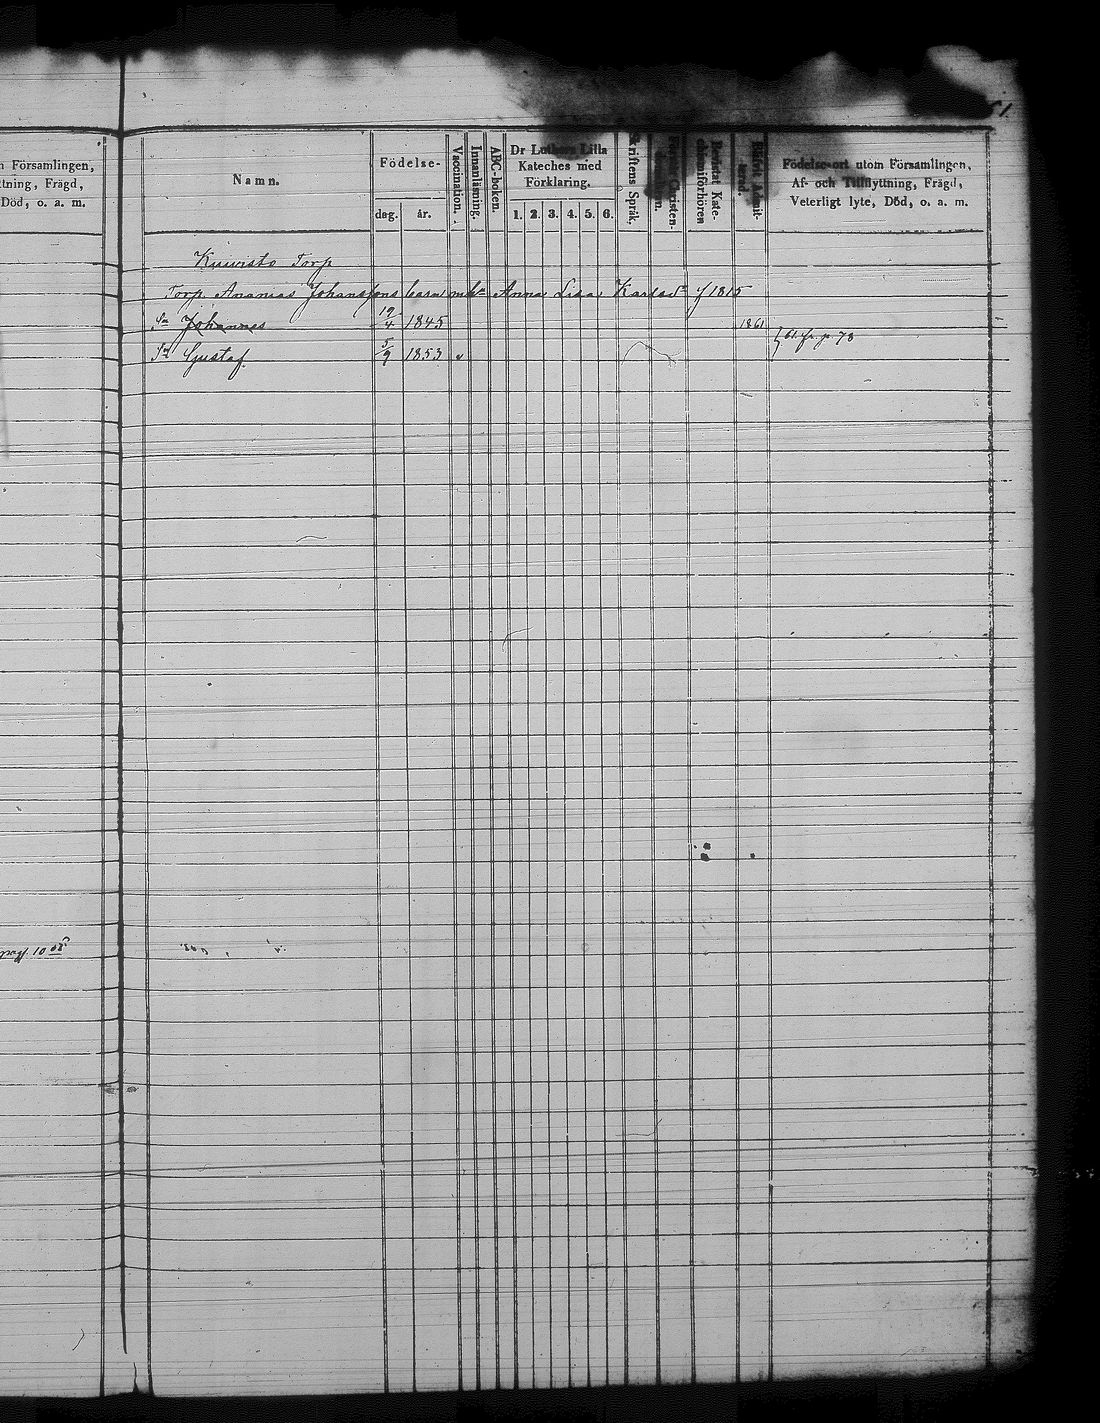 51.
Församlingen,
ttning, Frägd,
Död, o. a. m.
Namn.
Födelse-
dag. år.
Vaccination.
Innanläsning.
ABC-boken.
Dr Luthers Lilla
Kateches med
Förklaring.
1. 2. 3. 4. 5. 6.
Skriftens Språk.
Bevistat Kate-
chismiförhören
Födelse-ort utom Församlingen,
Af- och Tillflyttning, Frägd,
Veterligt lyte, Död, o. a. m.
Kuivisto Torp
Torp. Ananias Johanssons barn m h:u Anna Lisa Karlsd:r f 1815
Sn Johannes 19/4 1845 1861
Sn Gustaf 5/9 1853 v
61 fr. p. 78